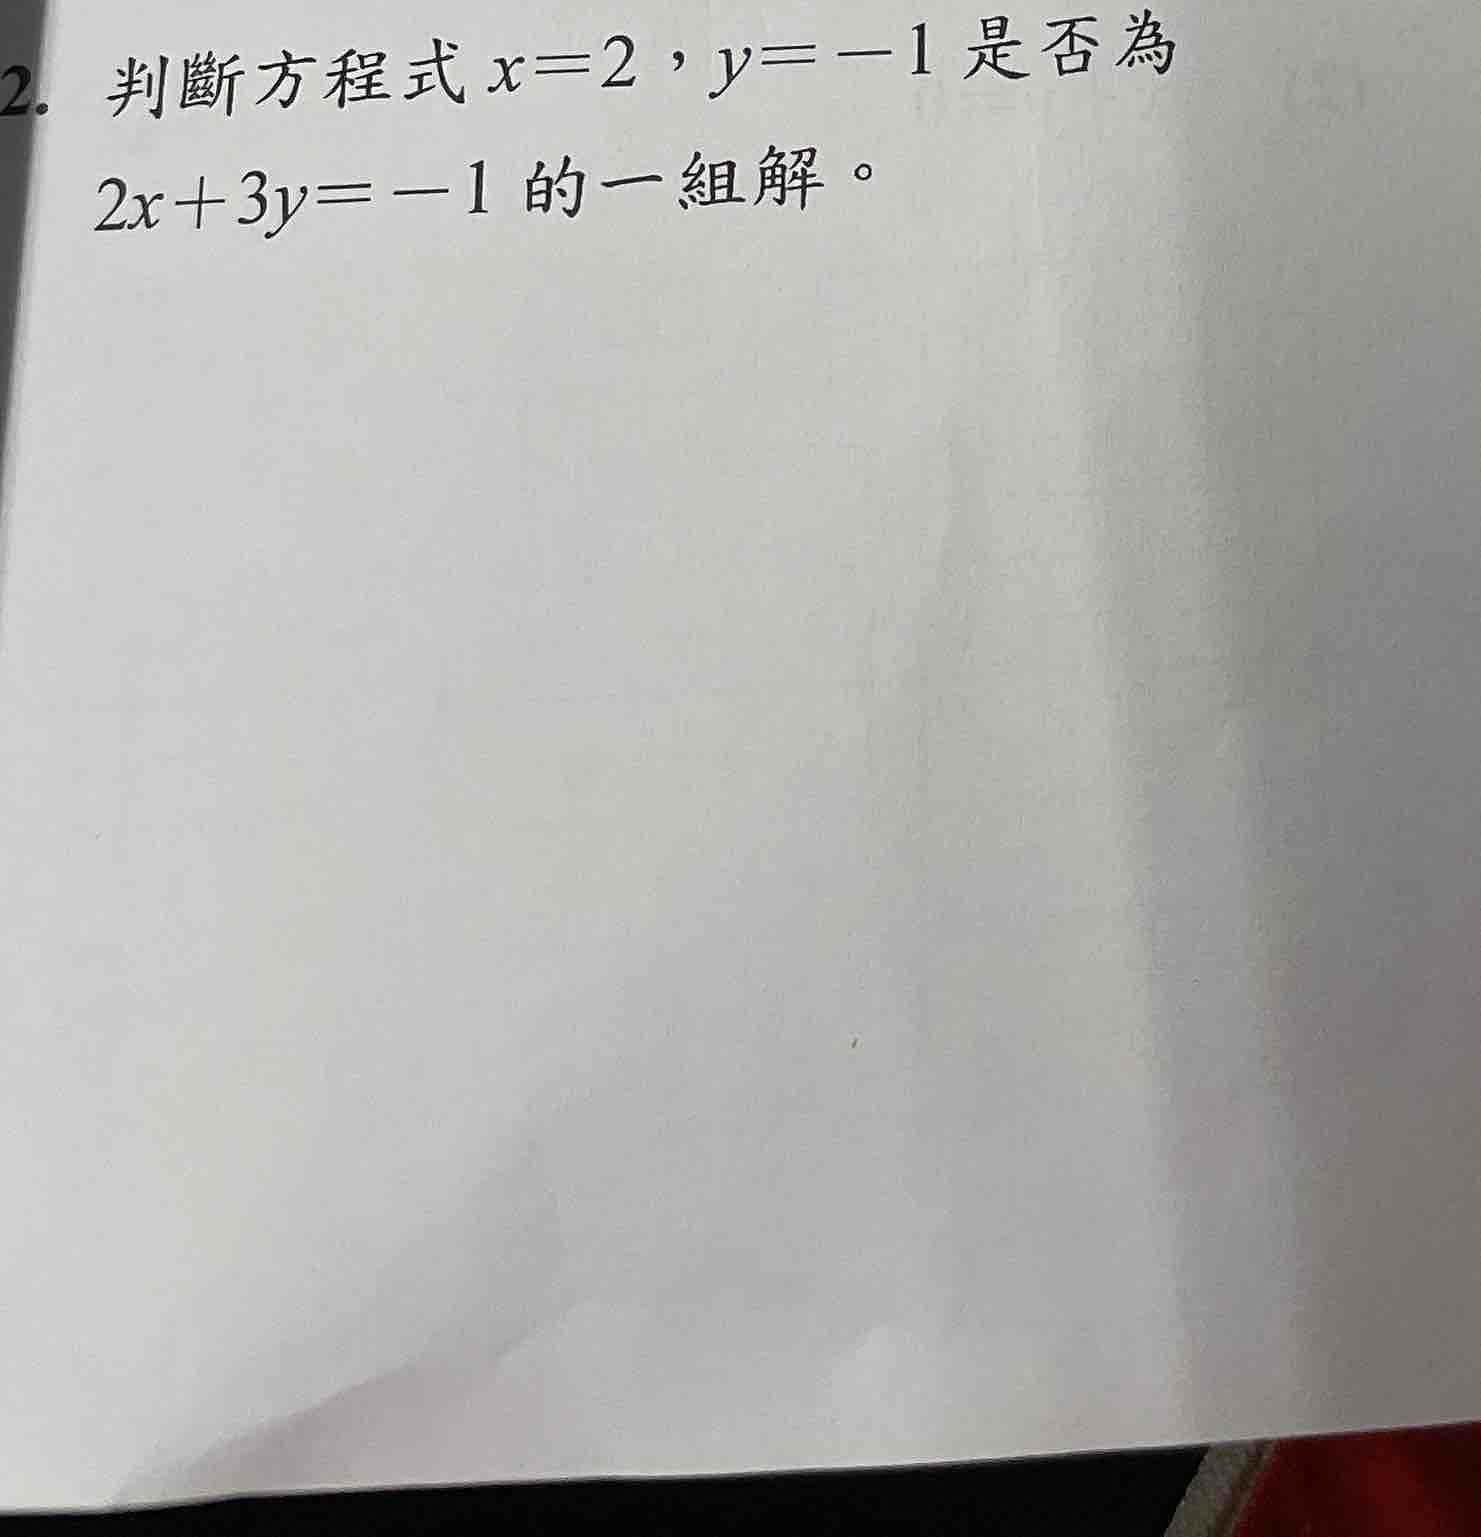 2. 判斷方程式 x=2，y=-1 是否為
2x+3y=-1 的一組解。